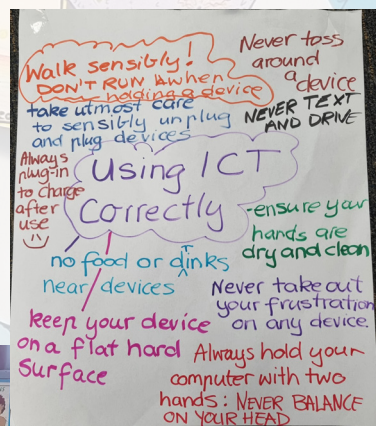 Walk sensibly!
DON'T RUN when
holding a device
Never toss
around
a device
NEVER TEXT
AND DRIVE
take utmost care
to sensibly unplug
and plug devices
Always
plug-in
to charge
after
use
Using ICT
Correctly
-ensure your
hands are
dry and clean
no food or drinks
near devices
Never take out
your frustration
on any device.
keep your device
on a flat hard
surface
Always hold your
computer with two
hands: NEVER BALANCE
ON YOUR HEAD